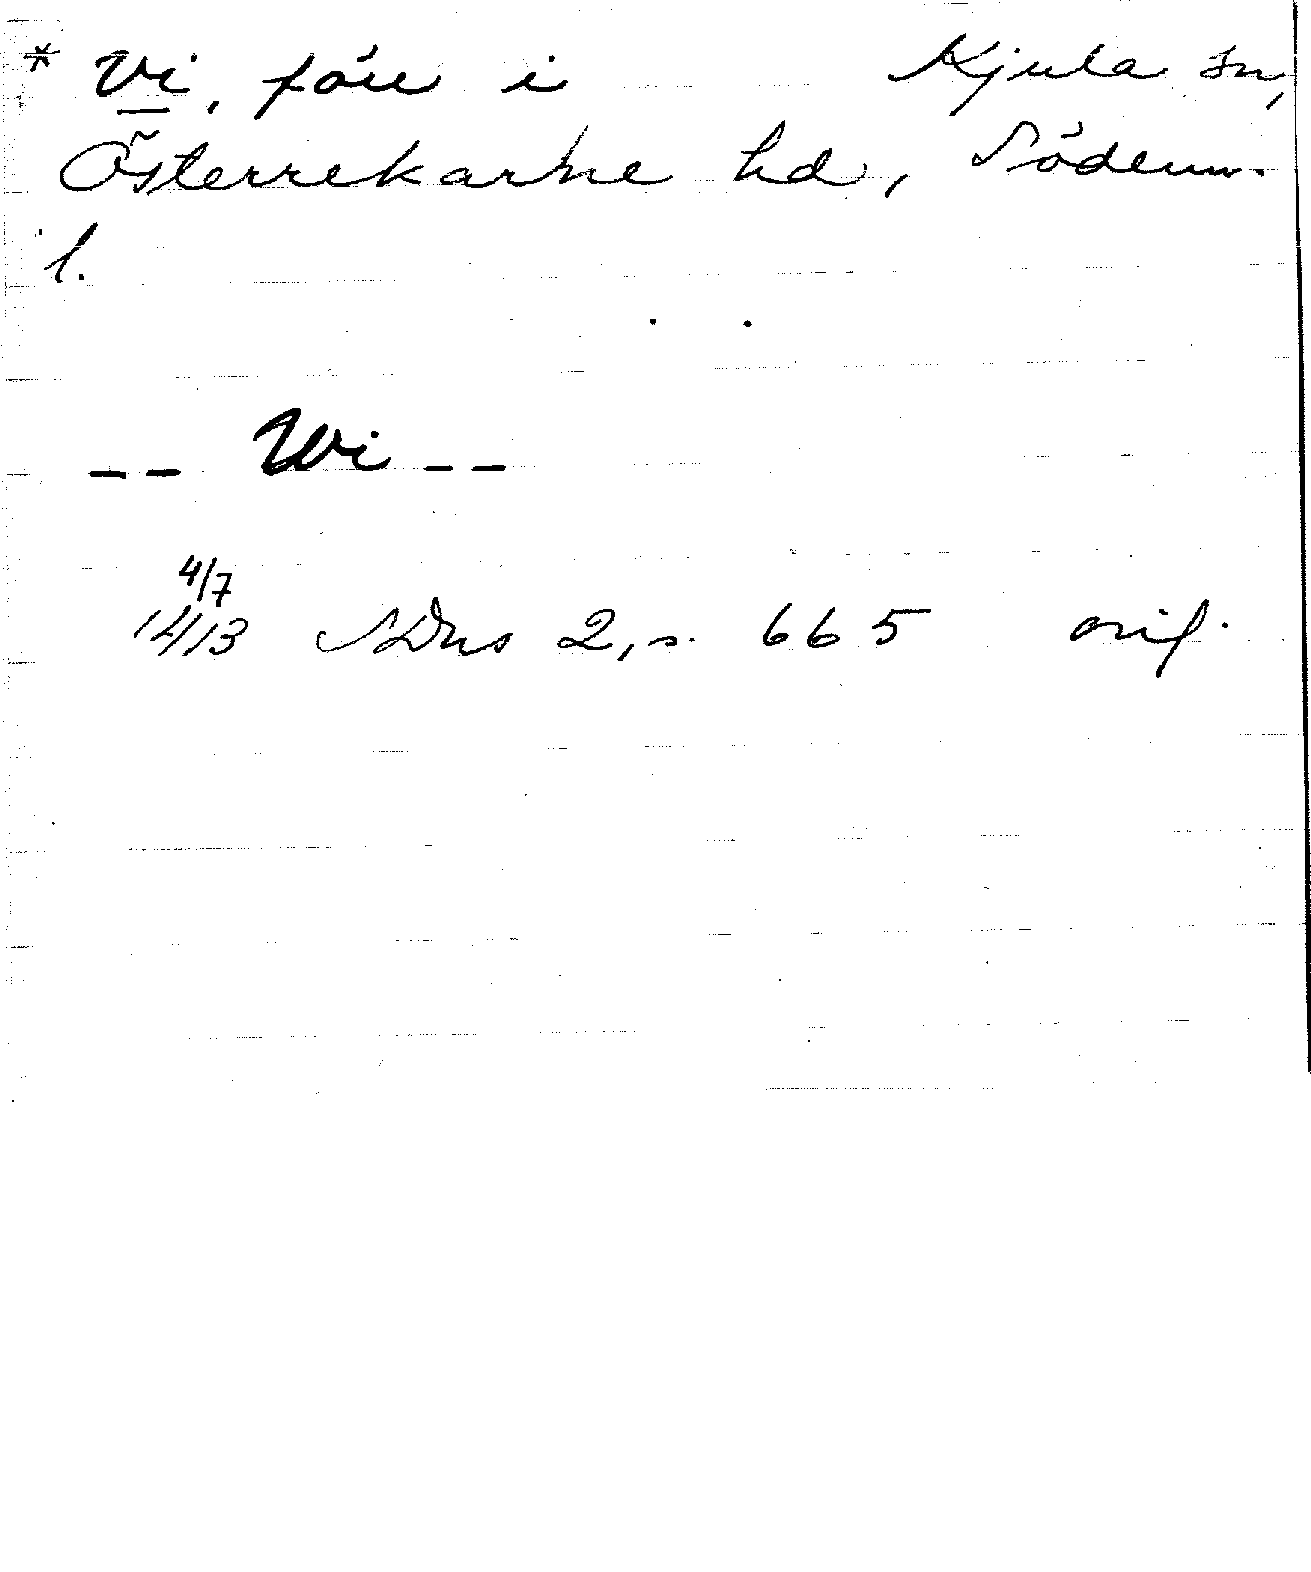 * Vi, förr i Kjula sn,
Österrekarne hd, Söderm.
l.
-- Wi --
4/7
1413 SDns 2, s. 665 orig.